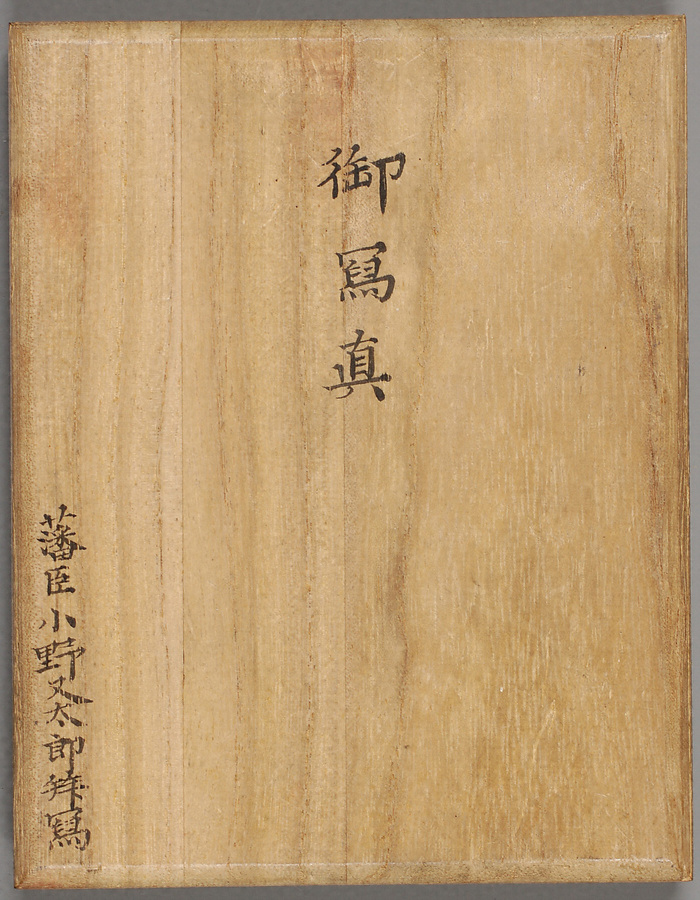 御冩真
藩臣小野又太郎拜冩